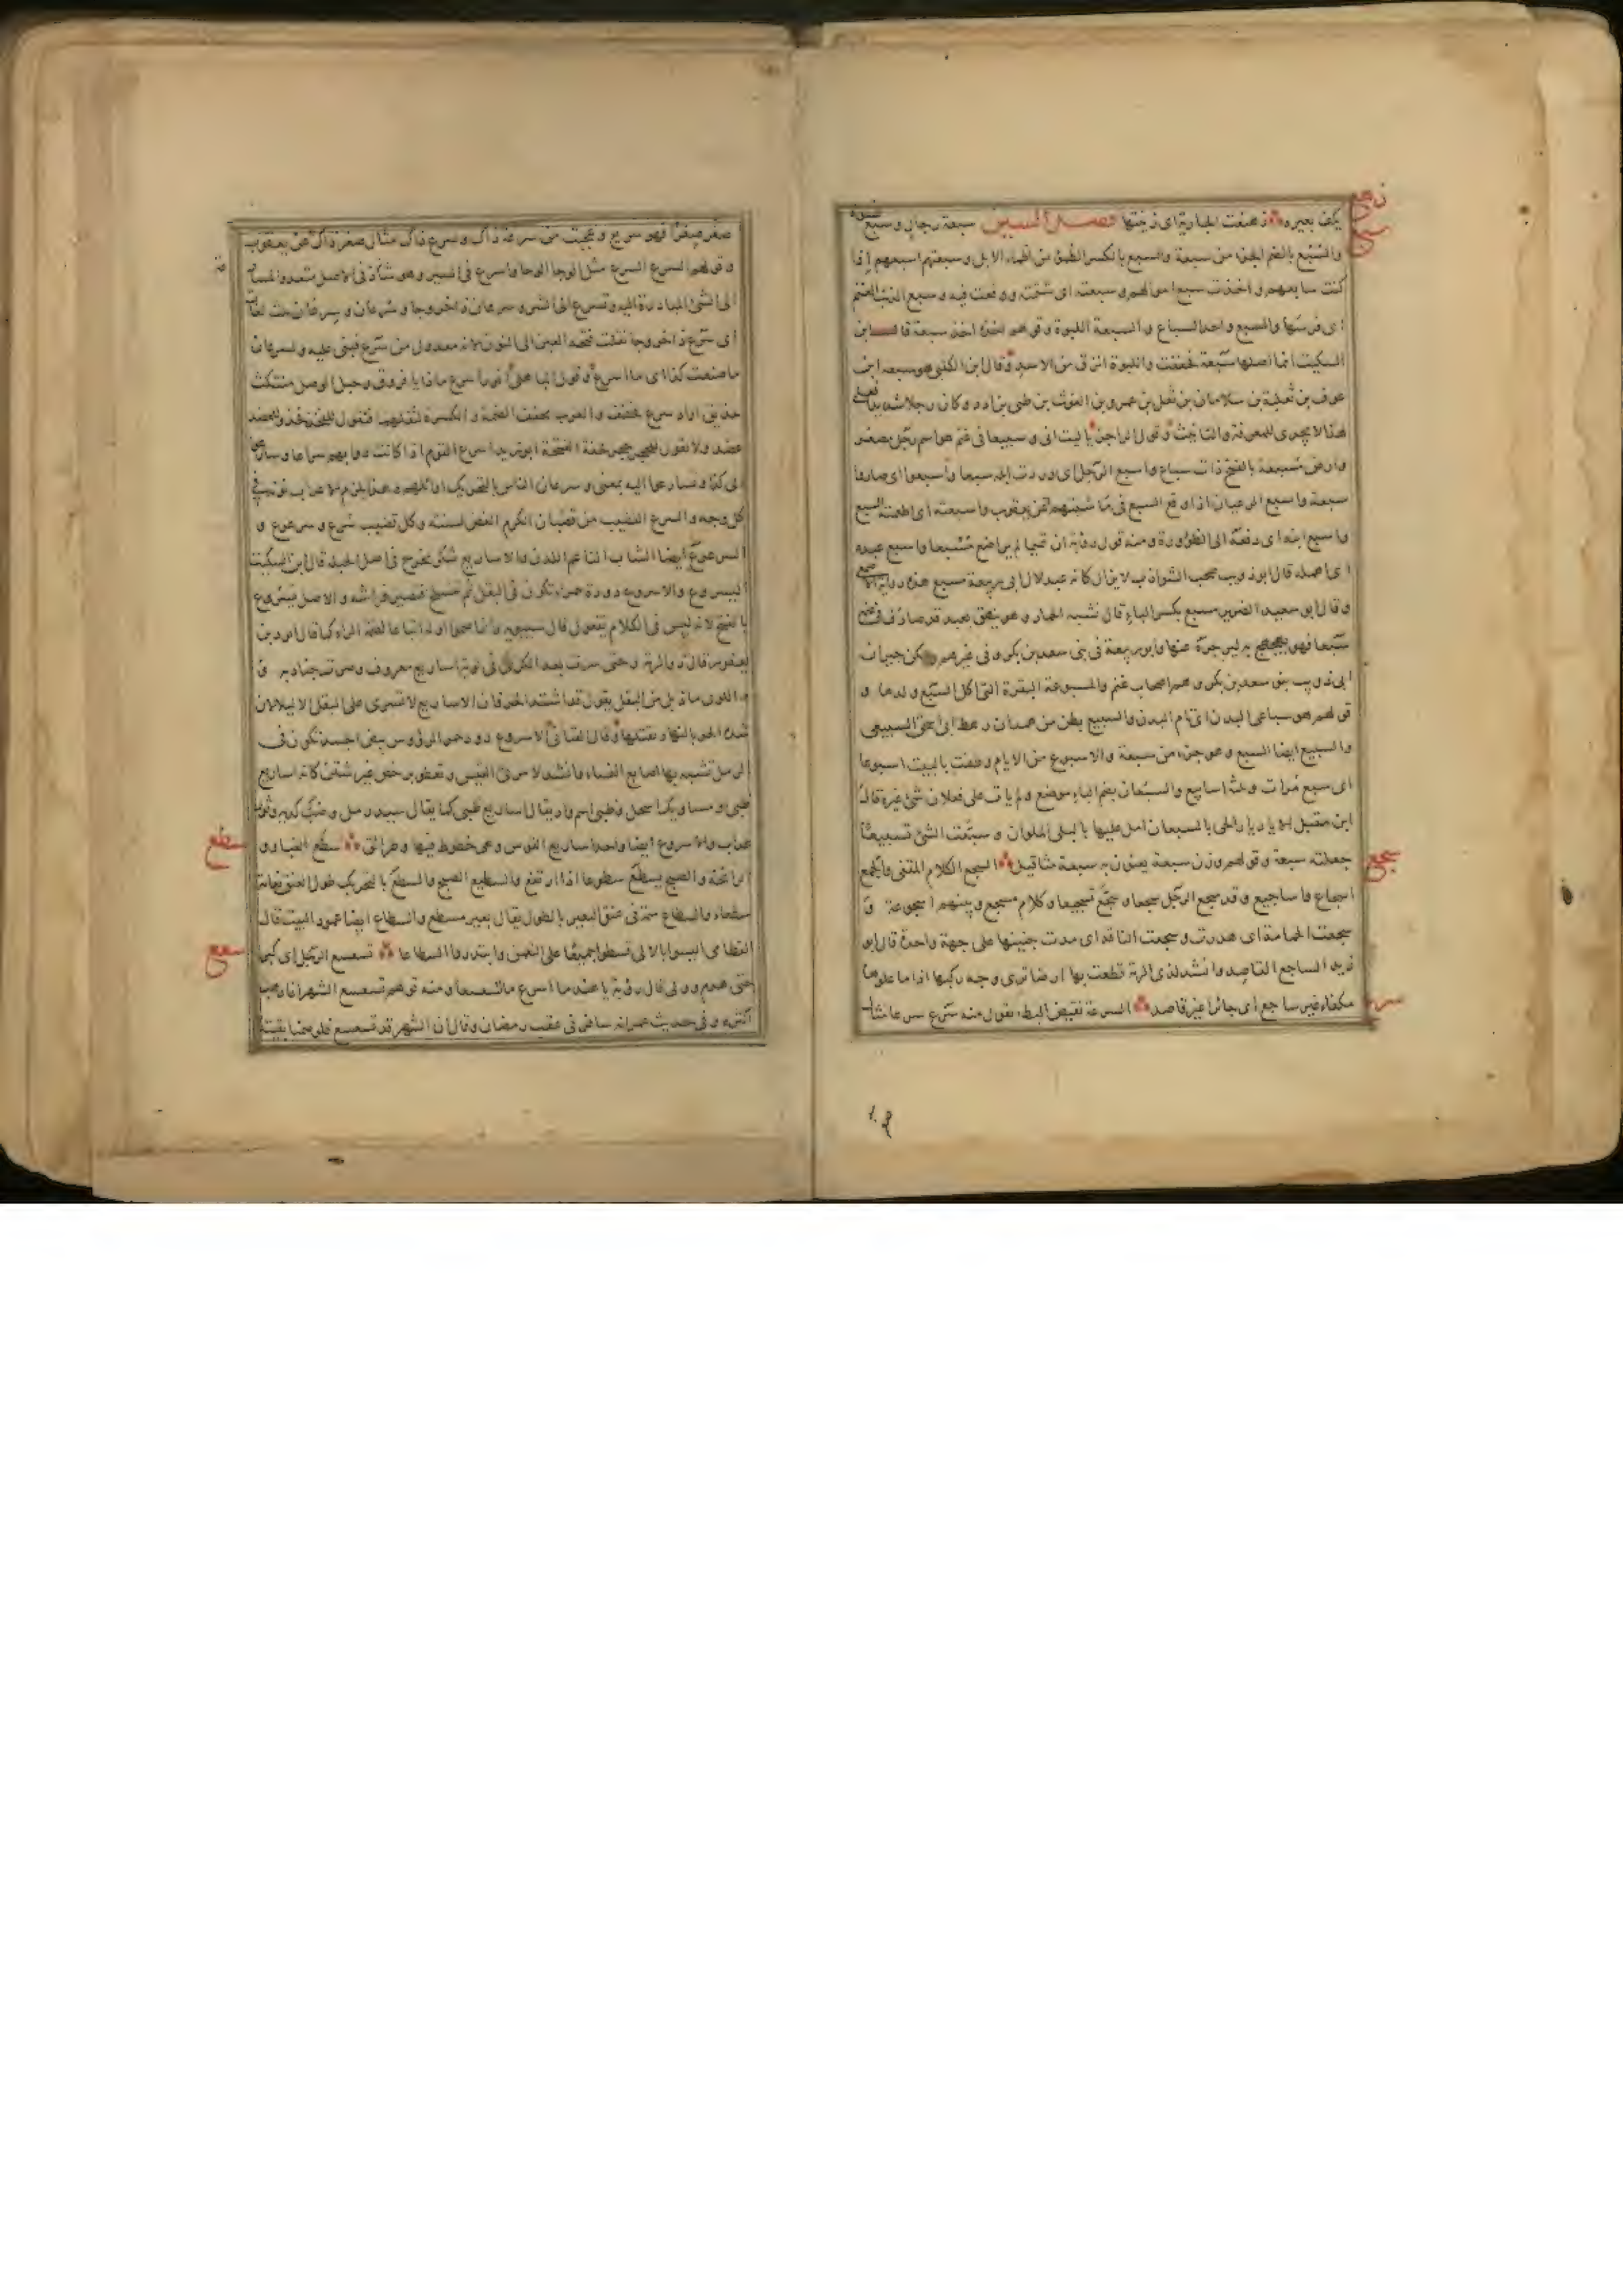 يكف بعيره ذهنعت الجارية اى زينتها فصل السين سبعة رجال وسبع نسوة
والسبع بالضم الجزء من سبعة والسبع بالكسر الظمؤ من اظماء الابل وسبعتهم اسبعهم اذا
كنت سابعهم واخذت سبع اموالهم وسبعته اى شتمته ووقعت فيه وسبع الذئب الغنم
اى فرسها والسبع واحد السباع والسبعة اللبوة وقولهم اخذه اخذ سبعة قال ابن
السكيت انما اصلها سبعة فخففت واللبوة انزق من الاسد وقال ابن الكلبى هو سبعة ابن
عوف بن ثعلبة بن سلامان بن ثعل بن عمرو بن الغوث بن طى بن ادد وكان رجلا شديدا فعلى
هذا لا يجرى للمعرفة والتانيث وقول الراجز يا ليت انى وسبيعا فى غنم هو اسم رجل مصغر
وارض مسبعة بالفتح ذات سباع واسبع الرجل اى وردت ابله سبعا واسبعوا اى صاروا
سبعة واسبع الرعيان اذا وقع السبع فى ماشيتهم عن يعقوب واسبعته اى اطعمته السبع
واسبع ابنه اى دفعه الى الظؤورة ومنه قول رؤبة ان تميما لم يراضع مسبعا واسبع عبده
اى اهمله قال ابو ذويب صخب الشوارب لا يزال كانه عبد لال ابى ربيعة مسبع هذه رواية الاصمعى
وقال ابو سعيد الضرير مسبع بكسر الباء قال فشبه الحمار وهو ينهق بعبد قد صادف فى غنمه
سبعا فهو يهجهج به ليزجره عنها وابو ربيعة فى بنى سعد بن بكر وفى غيرهم ولكن جيران
ابى ذويب بنو سعد بن بكر وهم اصحاب غنم والمسبوعة البقرة التى اكل السبع ولدها و
قولهم هو سباعى البدن اى تام البدن والسبيع بطن من همدان رهط ابى اسحق السبيعى
والسبيع ايضا السبع وهو جزء من سبعة والاسبوع من الايام وطفت بالبيت اسبوعا
اى سبع مرات وثلثة اسابيع والسبعان بضم الباء موضع ولم يات على فعلان شئ غيره قال
ابن مقبل الا يا ديار الحى بالسبعان امل عليها بالبلى الملوان وسبعت الشئ تسبيعا
جعلته سبعة وقولهم وزن سبعة يعنون به سبعة مثاقيل السجع الكلام المقفى والجمع
اسجاع واساجيع وقد سجع الرجل سجعا وسجع تسجيعا وكلام مسجع وبينهم اسجوعة و
سجعت الحمامة اى هدرت وسجعت الناقة اى مدت حنينها على جهة واحدة قال ابو
زيد الساجع القاصد وانشد لذى الرمة قطعت بها ارضا ترى وجه ركبها اذا ما علوها
مكفاء غير ساجع اى جائرا غير قاصد السرعة نقيض البطء تقول منه سرع سرعا مثال
ذهنع
سبع
سجع
سرع
صغر صغرا فهو سريع وعجبت من سرعة ذاك وسرع ذاك مثال صغر ذاك عن يعقوب
وقولهم السرع السرع مثل الوحا الوحا واسرع فى السير وهو شاذ فى الاصل متعد والمسارعة
الى الشئ المبادرة اليه وتسرع الى الشر وسرعان ذا خروجا وسرعان وسرعان ثلث لغات
اى سرع ذا خروجا نقلت فتحة العين الى النون لانه معدول من سرع فبنى عليه ولسرعان
ما صنعت كذا اى ما اسرع وقول الباهلى انورا سرع ماذا يا فروق وحبل الوصل منتكث
حذيق اراد سرع فخفف والعرب تخفف الضمة والكسرة لثقلهما فتقول للفخذ فخذ وللعضد
عضد ولا تقول للحجر حجر لخفة الفتحة ابو زيد اسرع القوم اذا كانت دوابهم سراعا وسارعوا
الى كذا وتسارعوا اليه بمعنى وسرعان الناس بالتحريك اوائلهم وهذا يلزم الاعراب نونه فى
كل وجه والسرع القضيب من قضبان الكرم الغض لسنته وكل قضيب سرع وسرعرع و
السرعرع ايضا الشاب الناعم اللدن والاساريع شكر يخرج فى اصل الحبلة قال ابن السكيت
اليسروع والاسروع دودة حمراء تكون فى البقل ثم تنسلخ فتصير فراشة والاصل يسروع
بالفتح لانه ليس فى الكلام يفعول قال سيبويه وانما ضموا اوله اتباعا لضمة الراء كما قالوا اسود بن
يعفر قال ذو الرمة وحتى سرت بعد الكرى فى لويه اساريع معروف وصرت جنادبه و
اللوى ما ذبل من البقل يقول قد اشتد الحر فان الاساريع لا تسرى على البقل الا ليلا لان
شدة الحر بالنهار تقتلها وقال القنانى الاسروع دود حمر الرؤوس بيض الجسد تكون فى
الرمل تشبه بها اصابع النساء وانشد لامرئ القيس وتعطو برخص غير شثن كانه اساريع
ظبى او مساويك اسحل وظبى اسم واد يقال اساريع ظبى كما يقال سيد رمل وضب كدية وثور
عداب والاسروع ايضا واحد اساريع القوس وهى خطوط فيها وطرائق سطع الغبار و
الرائحة والصبح يسطع سطوعا اذا ارتفع والسطيع الصبح والسطع بالتحريك طول العنق نعامة
سطعاء والسطاع سمة فى عنق البعير بالطول يقال بعير مسطع والسطاع ايضا عمود البيت قال
القطامى اليسوا بالالى قسطوا جميعا على النعمن وابتدروا السطاعا تسعسع الرجل اى كبر
حتى هرم وولى قال رؤبة يا هند ما اسرع ما تسعسعا ومنه قولهم تسعسع الشهر اذا ذهب
اكثره وفى حديث عمر انه سافر فى عقب رمضان وقال ان الشهر قد تسعسع فلو صمنا بقيته
سطع
سعع